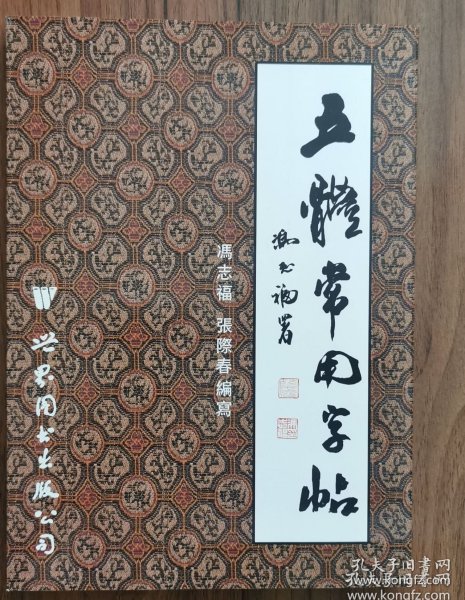 五體常用字帖
馮志福署
馮志福 張際春編寫
世界图书出版公司
孔夫子旧书网
www.kongfz.com